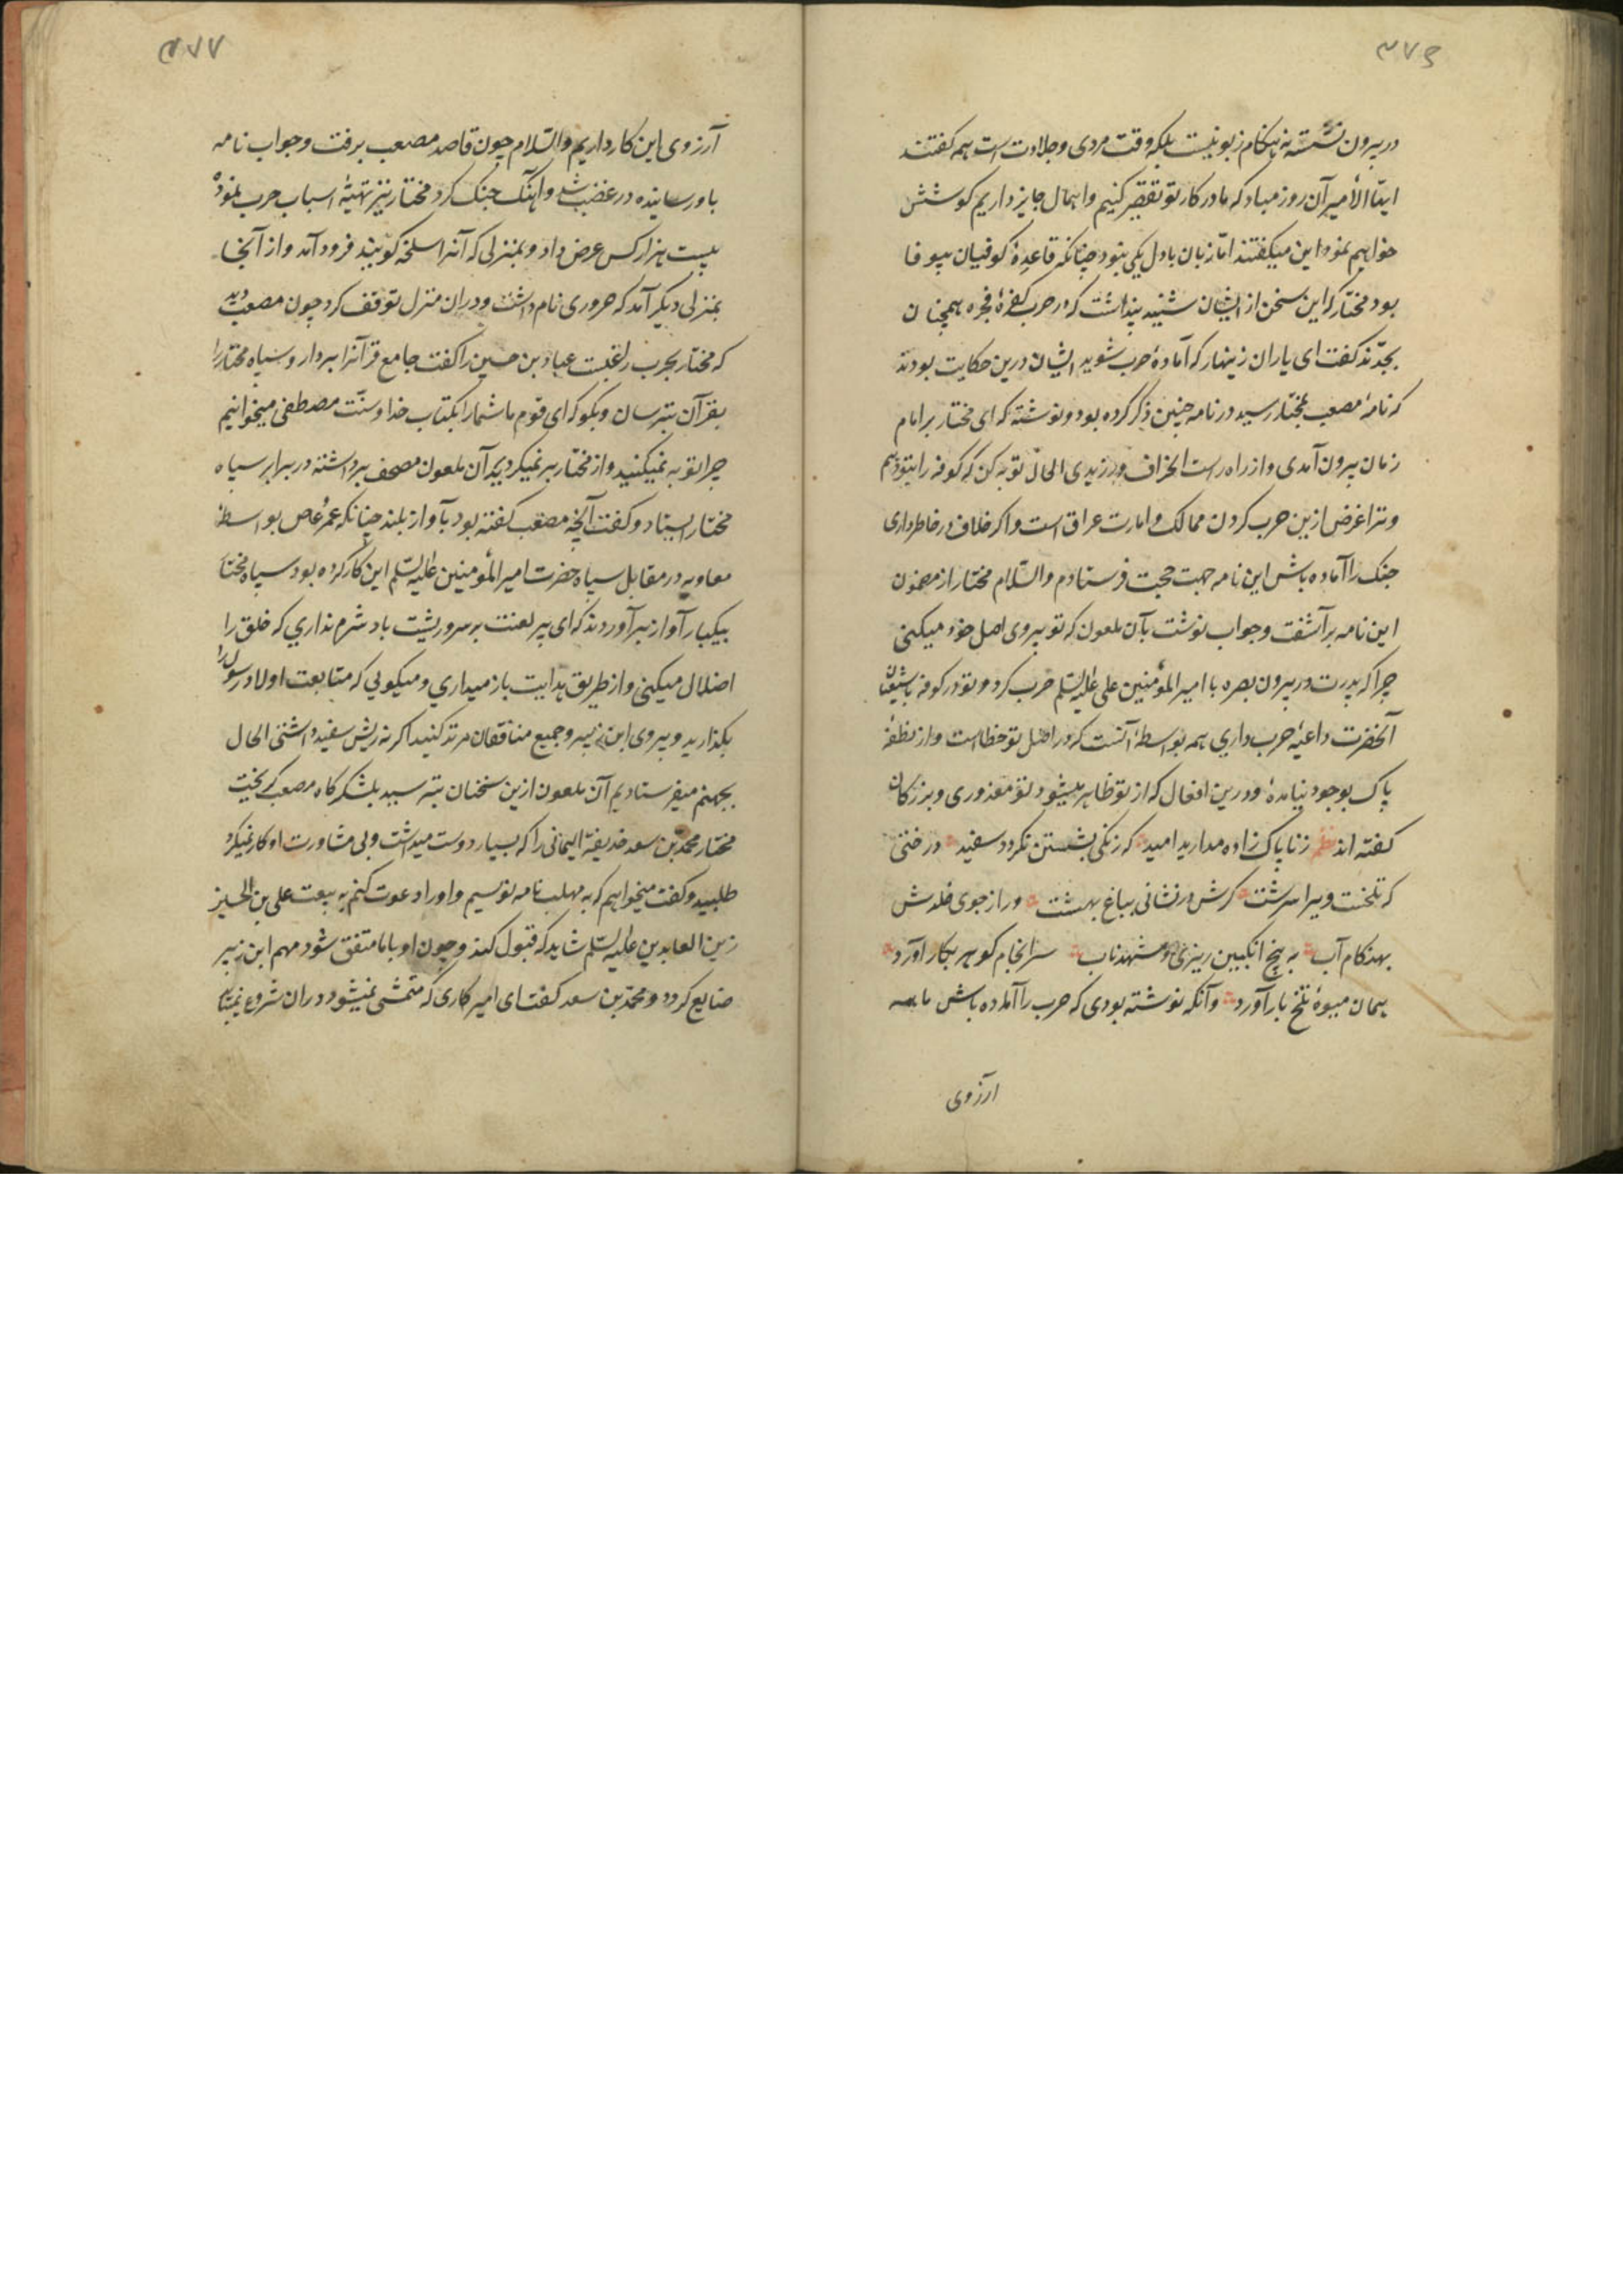 ۳۷۶
در بیرون نشسته نه هنکام زبونیست بلکه وقت مردی وجلادت است همه کفتند
ایّها الأمیر آن روز مباد که ما در کار تو تقصیر کنیم واهمال جایز داریم کوشش
خواهیم نمود این میکفتند امّا زبان با دل یکی نبود چنانکه قاعدهٔ کوفیان بیوفا
بود مختار که این سخن از ایشان شنید پنداشت که در حرب کفرهٔ فجره همچنان
بجدّند کفت ای یاران زینهار که آمادهٔ حرب شوید ایشان درین حکایت بودند
که نامهٔ مصعب بمختار رسید در نامه چنین ذکر کرده بود ونوشته که ای مختار بر امام
زمان بیرون آمدی واز راه راست انحراف ورزیدی الحال توبه کن که کوفه را بتو دهم
وترا غرض ازین حرب کردن ممالک وامارت عراق است واکر خلاف در خاطر داری
جنک را آماده باش این نامه جهت حجت فرستادم والسّلام مختار از مضمون
این نامه برآشفت وجواب نوشت بآن ملعون که تو پیروی اصل خود میکنی
چرا که پدرت در بیرون بصره با امیر المؤمنین علی علیه السّلم حرب کرد وتو در کوفه با شیعهٔ
آنحضرت داعیهٔ حرب داری همه بواسطهٔ آنست که در اصل تو خطا است واز نطفهٔ
پاک بوجود نیامدهٔ ودرین افعال که از تو ظاهر میشود تو معذوری وبزرکان
کفته اند نظم ز ناپاک زاده مدارید امید که زنکی بشستن نکردد سفید درختی
که تلخست ویرا سرشت کرش درنشانی بباغ بهشت ور از جوی خلدش
بهنکام آب به بیخ انکبین ریزی و شهد ناب سرانجام کوهر بکار آورد
همان میوهٔ تلخ بار آورد وآنکه نوشته بودی که حرب را آماده باش ما همه
ارزوی
۳۷۷
آرزوی این کار داریم والسّلام چون قاصد مصعب برفت وجواب نامه
باو رسانیده در غضب شد وآهنک جنک کرد مختار نیز تهیّهٔ اسباب حرب نموده
بیست هزار کس عرض داد وبمنزلی که آنرا سلخه کویند فرود آمد واز آنجا
بمنزلی دیکر آمد که حروری نام داشت ودران منزل توقف کرد چون مصعب دید
که مختار بحرب راغبست عباد بن حسین را کفت جامع قرآنرا بردار وسپاه مختار را
بقرآن بترسان وبکو که ای قوم ما شما را بکتاب خدا وسنّت مصطفی میخوانیم
چرا توبه نمیکنید واز مختار بر نمیکردید آن ملعون مصحف برداشته در برابر سپاه
مختار ایستاد وکفت آنچه مصعب کفته بود بآواز بلند چنانکه عمر عاص بواسطهٔ
معاویه در مقابل سپاه حضرت امیر المؤمنین علیه السّلم این کار کرده بود سپاه مختار
بیکبار آواز برآوردند که ای پیر لعنت بر سر وریشت باد شرم نداری که خلق را
اضلال میکنی واز طریق هدایت باز میداری ومیکویی که متابعت اولاد رسول را
بکذارید وپیروی ابن زبیر وجمیع منافقان مرتد کنید اکر نه ریش سفید داشتی الحال
بجهنم میفرستادیم آن ملعون ازین سخنان بترسید بلشکرکاه مصعب کریخت
مختار محمّد بن سعد حذیفة الیمانی را که بسیار دوست میداشت وبی مشاورت او کار نمیکرد
طلبید وکفت میخواهم که به مهلب نامه نویسیم واو را دعوت کنم به بیعت علی بن الحسین
زین العابدین علیه السّلم شاید که قبول کند وچون او با ما متفق شود مهم ابن زبیر
ضایع کردد ومحمّد بن سعد کفت ای امیر کاری که متمشی نمیشود دران شروع